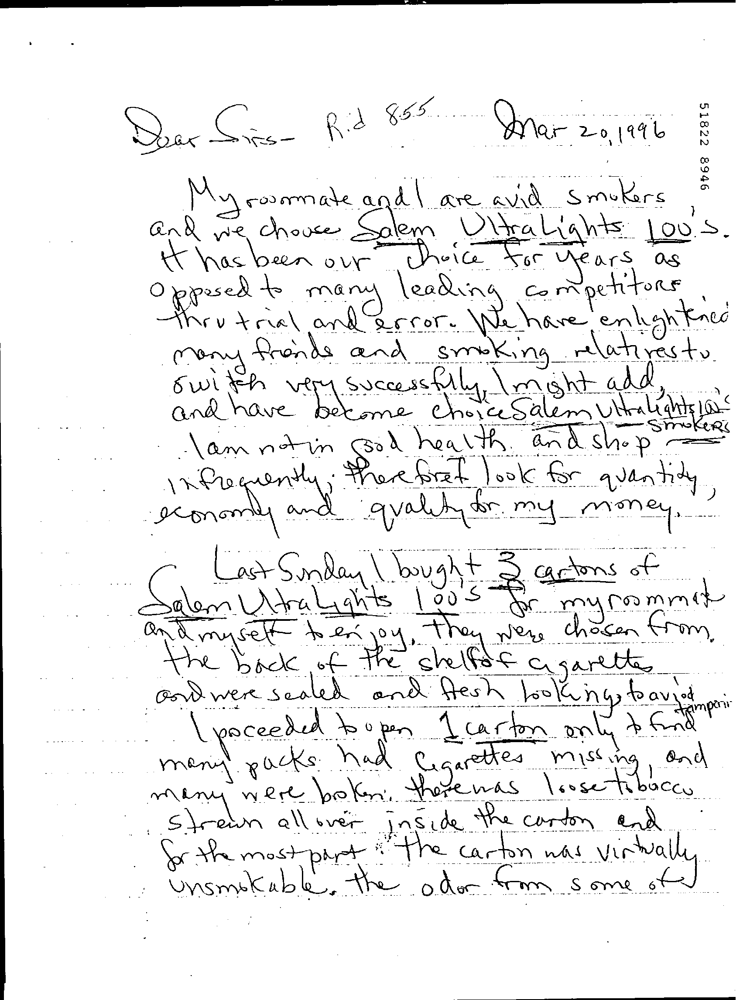 Dear Sirs- R.d 855 Mar 20, 1996
51822 8946
My roommate and I are avid smokers
and we choose Salem Ultra Lights 100's.
It has been our choice for years as
opposed to many leading competitors
thru trial and error. We have enlightened
many friends and smoking relatives to
switch very successfully, I might add,
and have become choice Salem Ultralights 100's
smokers
I am not in good health and shop
infrequently; therefore I look for quantity,
economy and quality for my money.
Last Sunday I bought 3 cartons of
Salem Ultra Lights 100's for my roommate
and myself to enjoy. They were chosen from
the back of the shelf of cigarettes
and were sealed and fresh looking, to aviod
tamperin
I poceeded to open 1 carton only to find
many packs had cigarettes missing, and
many were broken. there was loose tobacco
strewn all over inside the carton and
for the most part the carton was virtually
unsmokable. the odor from some of